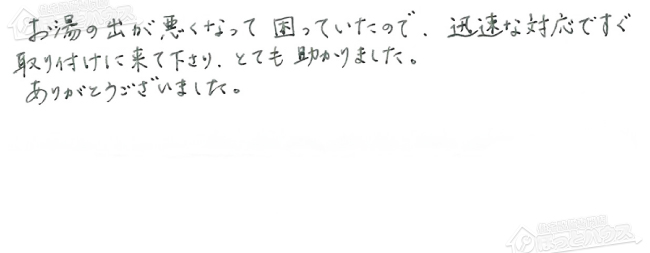 お湯の出が悪くなって困っていたので、迅速な対応ですぐ
取り付けに来て下さり、とても助かりました。
ありがとうございました。